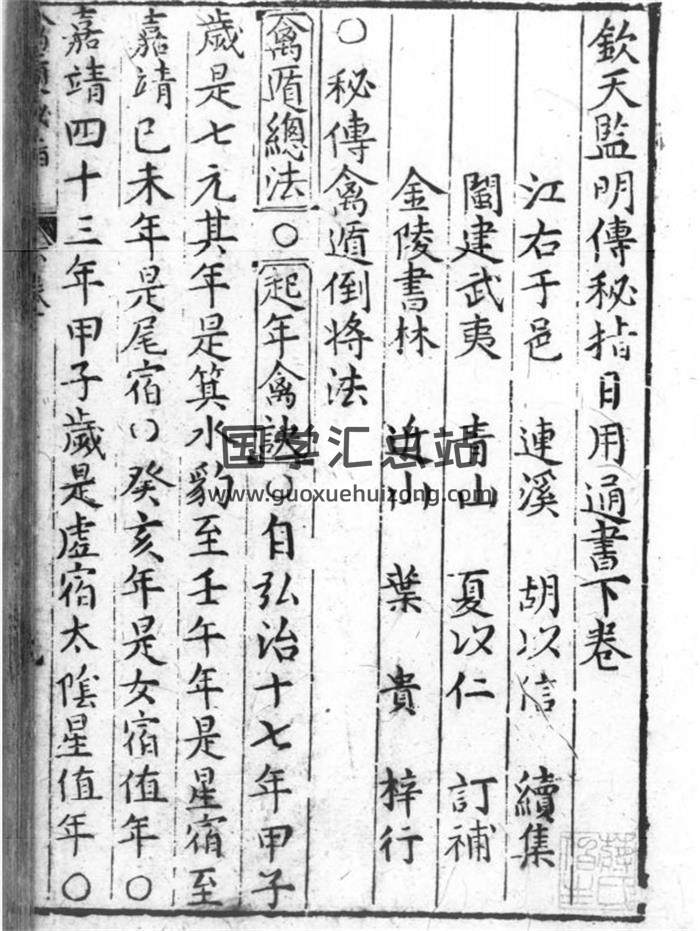 欽天監明傳秘指日用通書下卷
江右于邑 連溪 胡以信 續集
閩建武夷 青山 夏以仁 訂補
金陵書林 近山 葉貴 梓行
○秘傳禽遁倒將法
禽遁總法○起年禽訣○自弘治十七年甲子
歲是七元其年是箕水豹至壬午年是星宿至
嘉靖己未年是尾宿○癸亥年是女宿值年○
嘉靖四十三年甲子歲是虛宿太陰星值年○
国学汇总站
www.guoxuehuizong.com